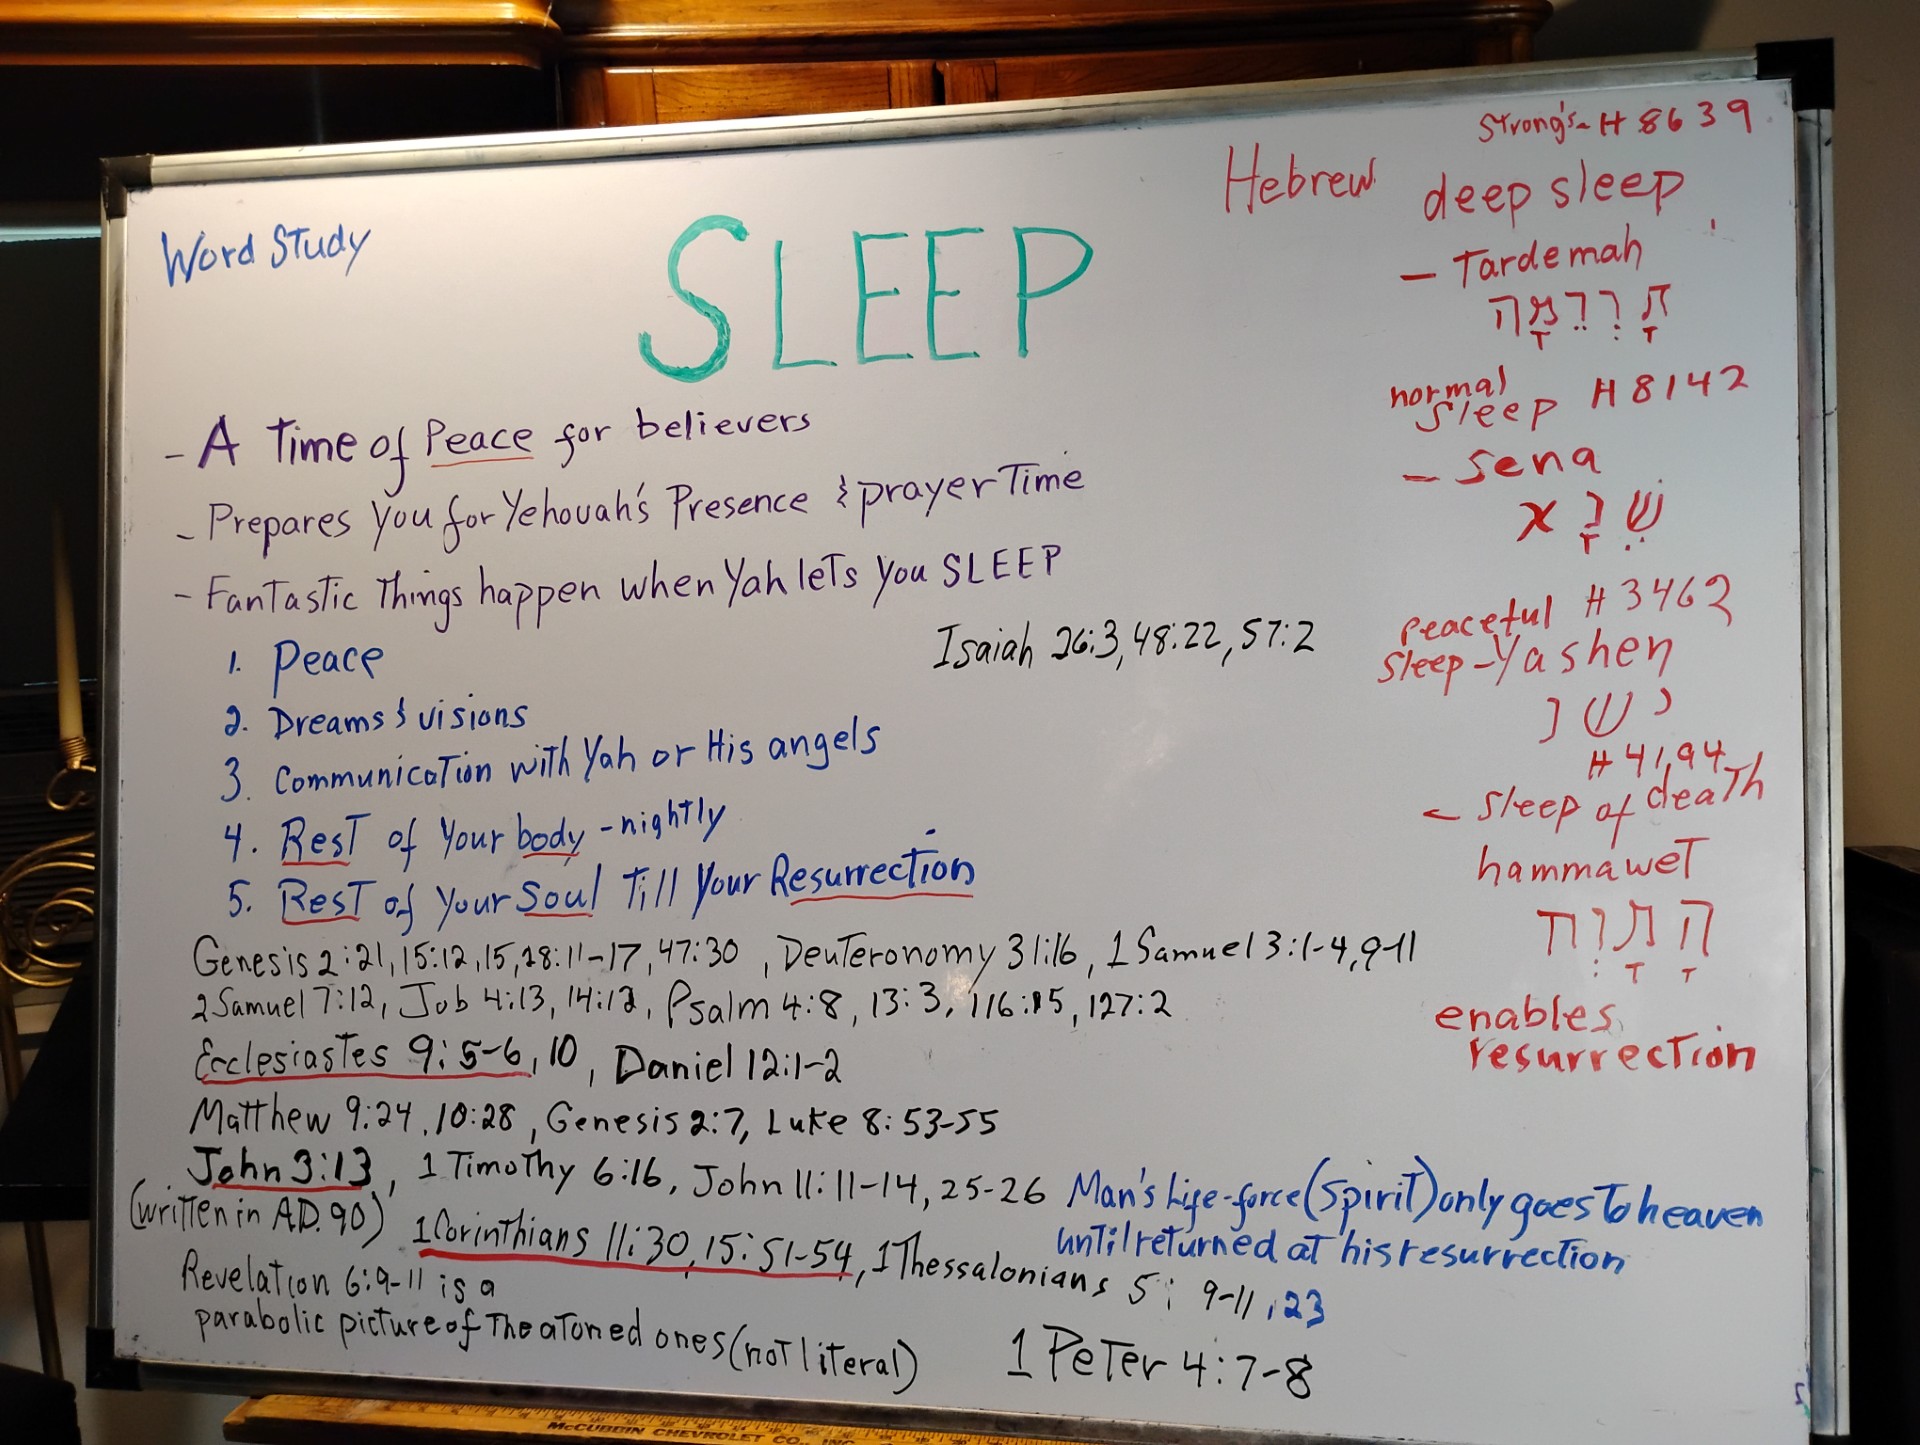 Word Study
SLEEP
- A Time of Peace for believers
- Prepares you for Yehovah's Presence & prayer Time
- Fantastic Things happen when Yah lets you SLEEP
1. Peace
Isaiah 26:3, 48:22, 57:2
2. Dreams & visions
3. Communication with Yah or His angels
4. Rest of your body - nightly
5. Rest of your Soul Till your Resurrection
Genesis 2:21, 15:12, 15, 28:11-17, 47:30, Deuteronomy 31:16, 1 Samuel 3:1-4, 9-11
2 Samuel 7:12, Job 4:13, 14:12, Psalm 4:8, 13:3, 116:15, 127:2
Ecclesiastes 9:5-6, 10, Daniel 12:1-2
Matthew 9:24, 10:28, Genesis 2:7, Luke 8:53-55
John 3:13, 1 Timothy 6:16, John 11:11-14, 25-26
(written in A.D. 90) 1 Corinthians 11:30, 15:51-54, 1 Thessalonians 5:9-11, 23
Man's Life-force (Spirit) only goes to heaven
until returned at his resurrection
Revelation 6:9-11 is a
parabolic picture of the atoned ones (not literal)
1 Peter 4:7-8
Strong's - H 8639
Hebrew deep sleep
- Tardemah
תָּרְדֵּמָה
normal
sleep H 8142
- Sena
שֵׁנָא
peaceful H 3462
sleep - Yashen
ישנ
H 4194
- sleep of death
hammawet
enables
resurrection
McCUBBIN CHEVROLET CO., INC.